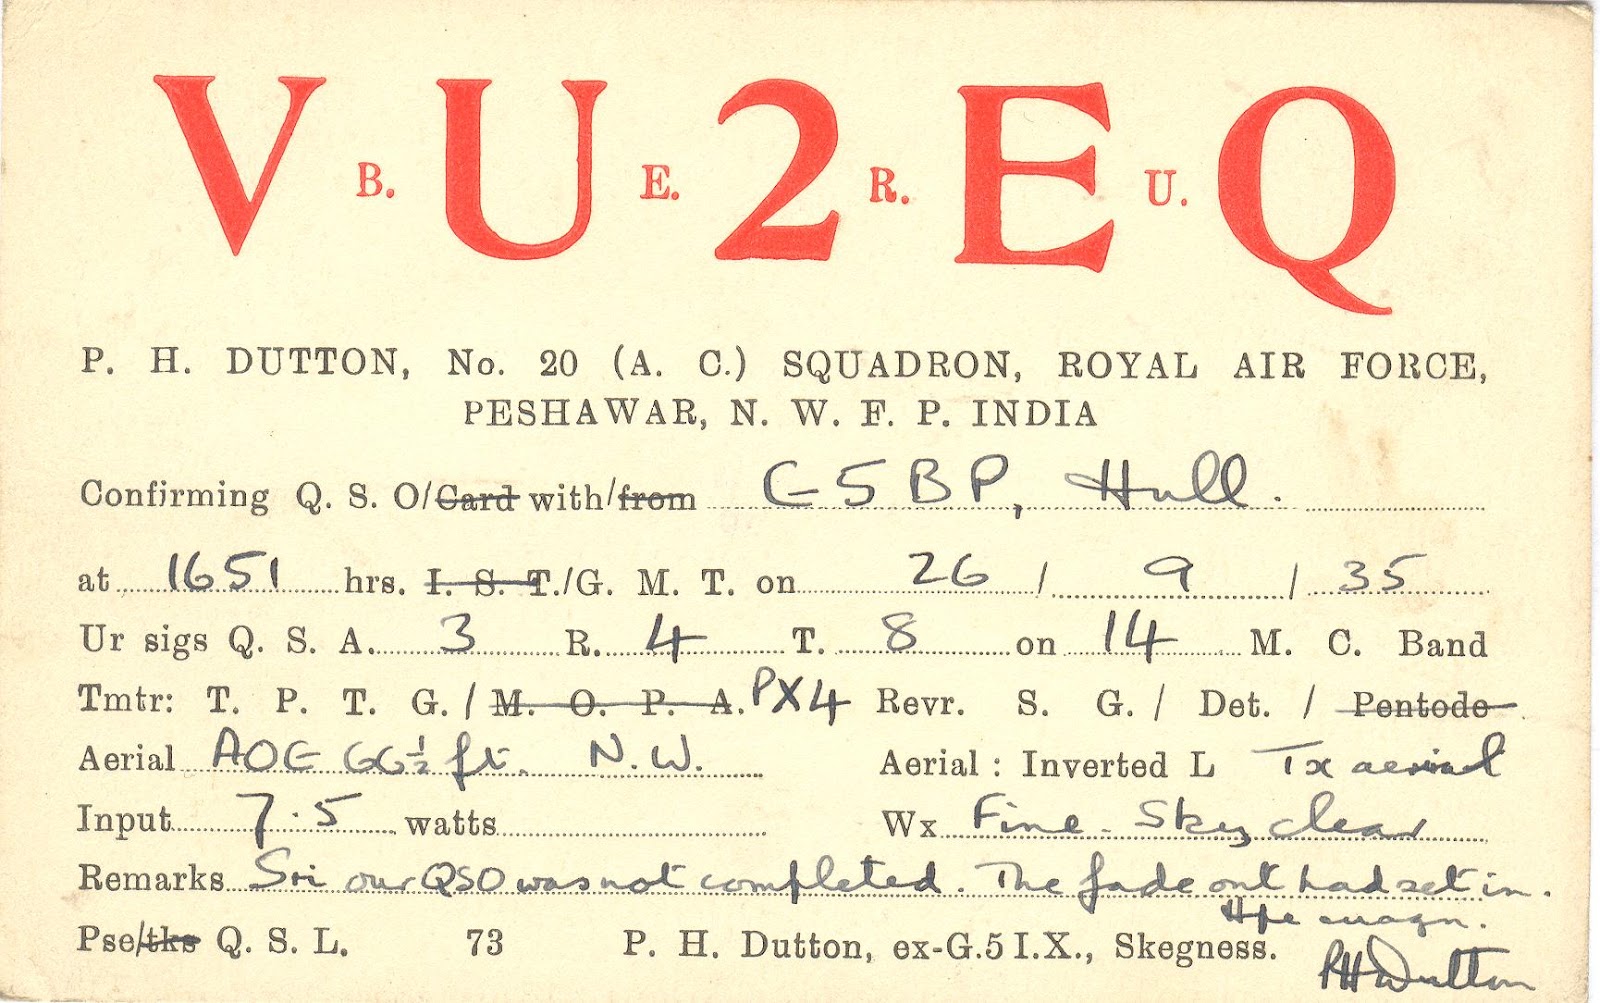 V B. U E. 2 R. E U. Q
P. H. DUTTON, No. 20 (A. C.) SQUADRON, ROYAL AIR FORCE,
PESHAWAR, N. W. F. P. INDIA
Confirming Q. S. O/Card with/from G5BP, Hull.
at 1651 hrs. I. S. T./G. M. T. on 26 / 9 / 35
Ur sigs Q. S. A. 3 R. 4 T. 8 on 14 M. C. Band
Tmtr: T. P. T. G. / M. O. P. A. PX4 Revr. S. G. / Det. / Pentode
Aerial AOG 66½ ft. N.W. Aerial : Inverted L Tx aerial
Input 7.5 watts Wx Fine. Sky clear
Remarks Sri our QSO was not completed. The fade out had set in.
Hpe cuagn.
Pse/tks Q. S. L. 73 P. H. Dutton, ex-G.5 I.X., Skegness.
PHDutton